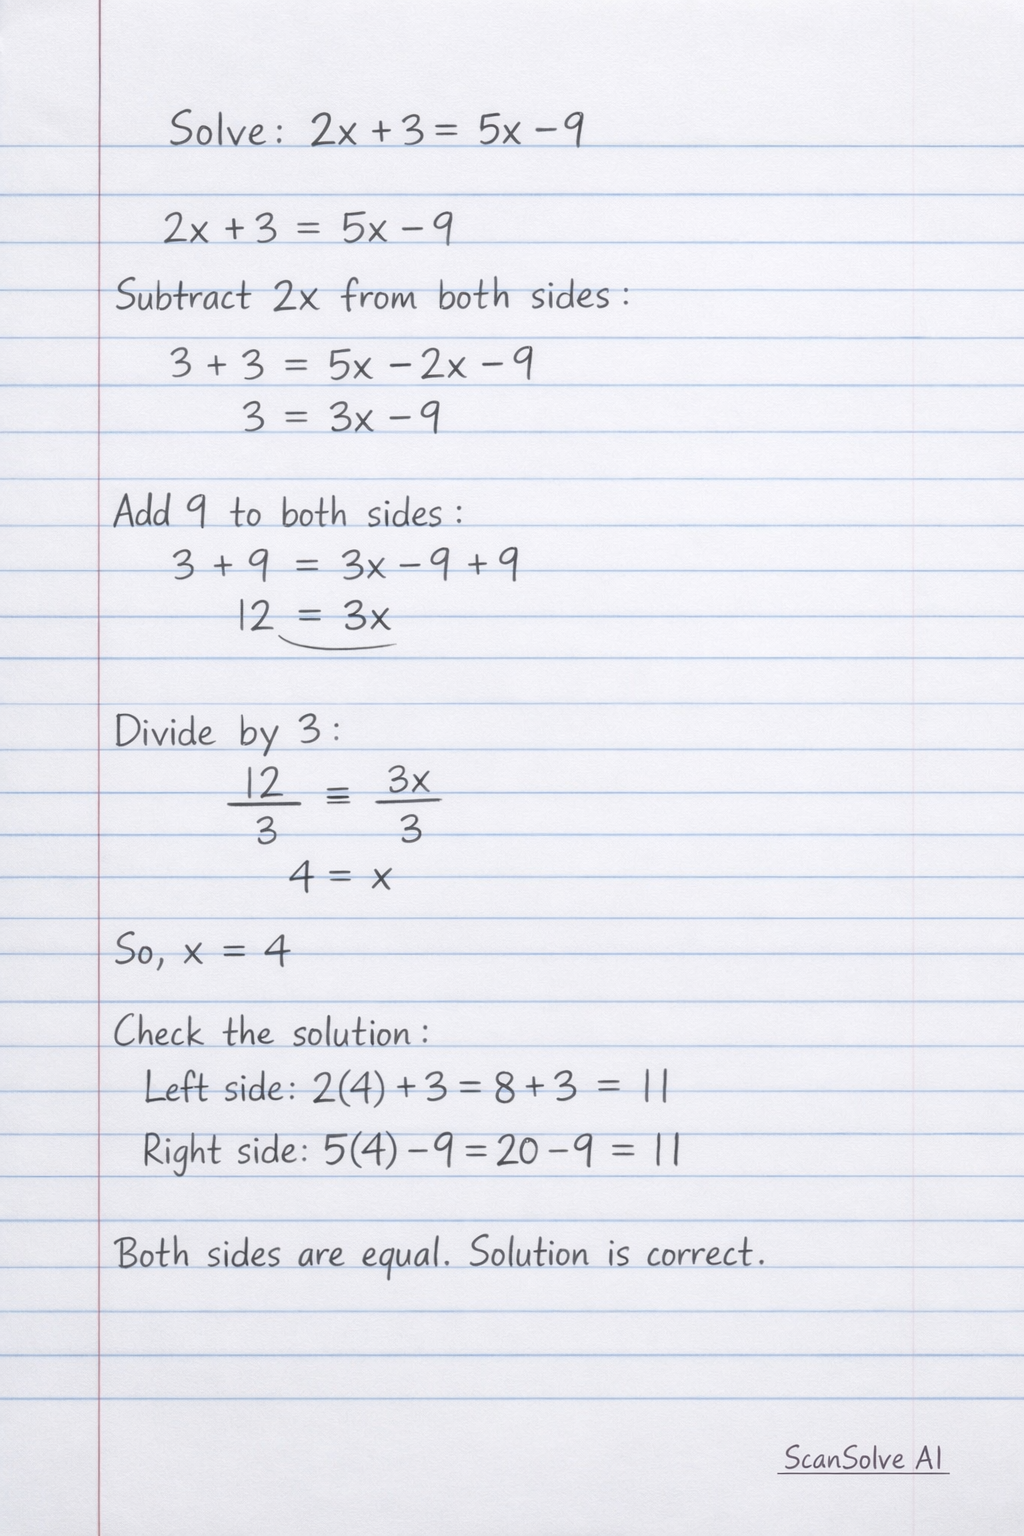 Solve: 2x + 3 = 5x - 9
2x + 3 = 5x - 9
Subtract 2x from both sides:
3 + 3 = 5x - 2x - 9
3 = 3x - 9
Add 9 to both sides:
3 + 9 = 3x - 9 + 9
12 = 3x
Divide by 3:
12/3 ≡ 3x/3
4 = x
So, x = 4
Check the solution:
Left side: 2(4) + 3 = 8 + 3 = 11
Right side: 5(4) - 9 = 20 - 9 = 11
Both sides are equal. Solution is correct.
ScanSolve AI